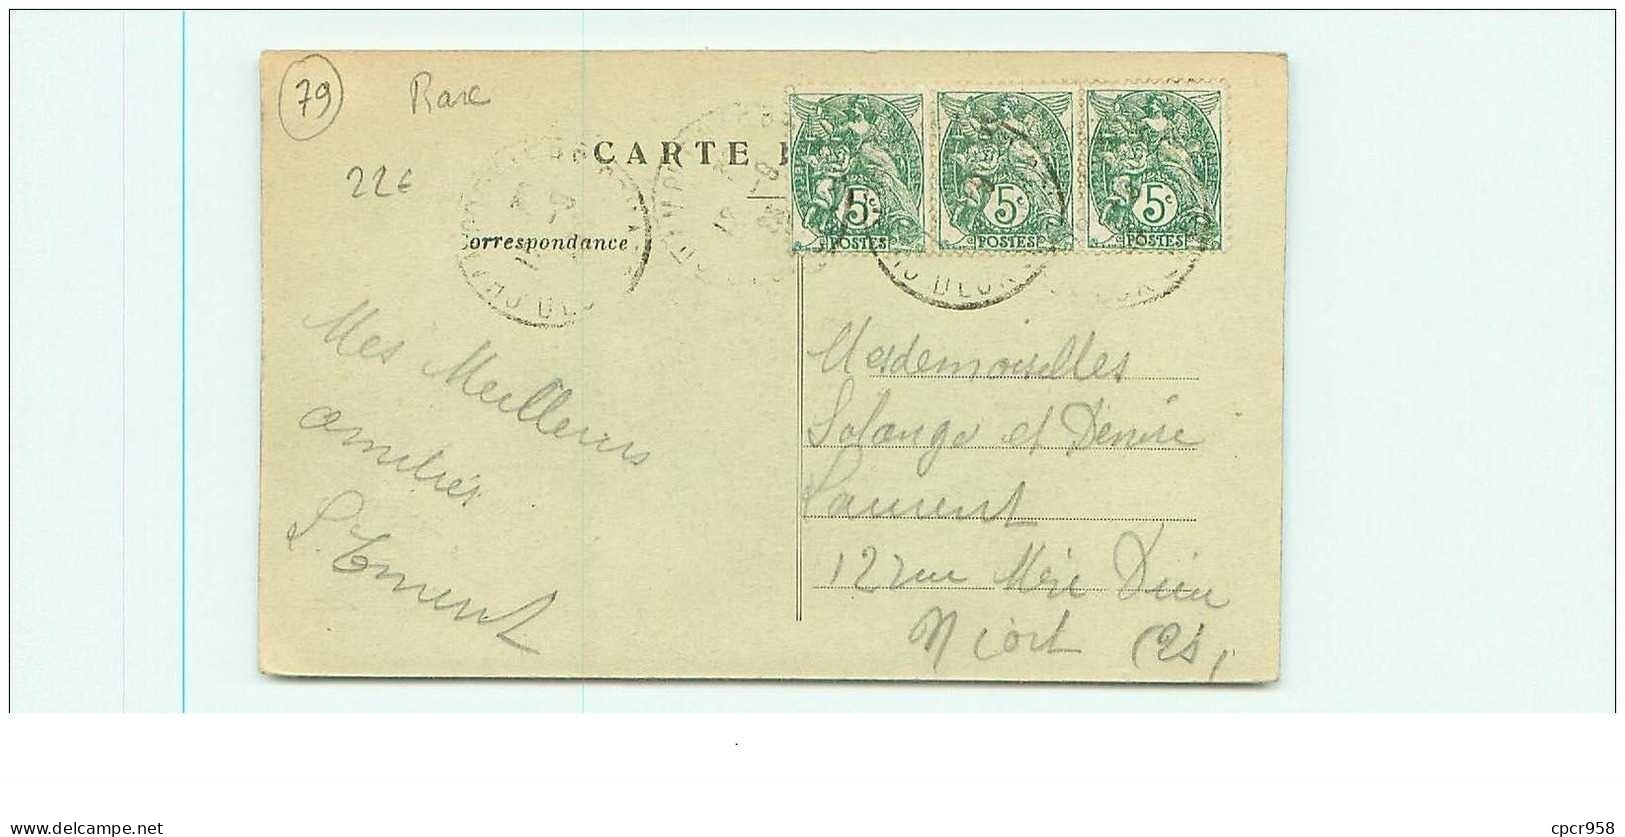 79
Rare
22€
CARTE
Correspondance
5c 5c 5c
POSTES POSTES POSTES
Mes Meilleurs
amitiés
Mesdemoiselles
Solange et Denise
Laurent
122 rue Mère Dieu
Niort (2S)
cpcr958